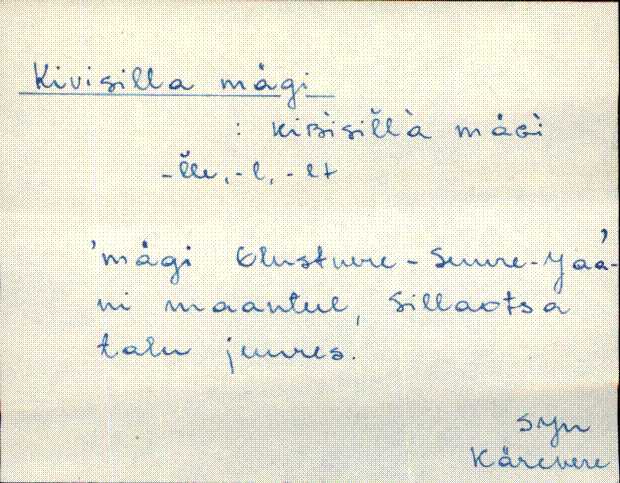 Kivisilla mägi
: kiʙisiĺĺà mäɢì
-l̆le, -l, -lt
'mägi Olustvere - Suure-Jaa-
ni maantul, Sillaotsa
talu juures.
SJn
Kärevere